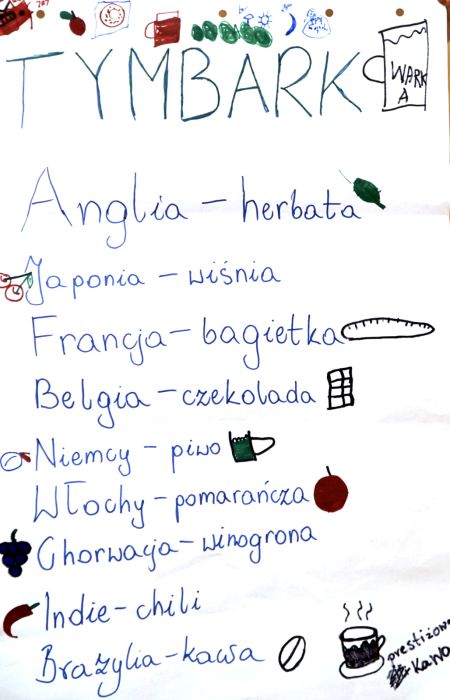 TYMBARK
WARK
A
Anglia – herbata
Japonia – wiśnia
Francja – bagietka
Belgia – czekolada
Niemcy – piwo
Włochy – pomarańcza
Chorwacja – winogrona
Indie – chili
Brazylia – kawa
prestiżowa
kawa